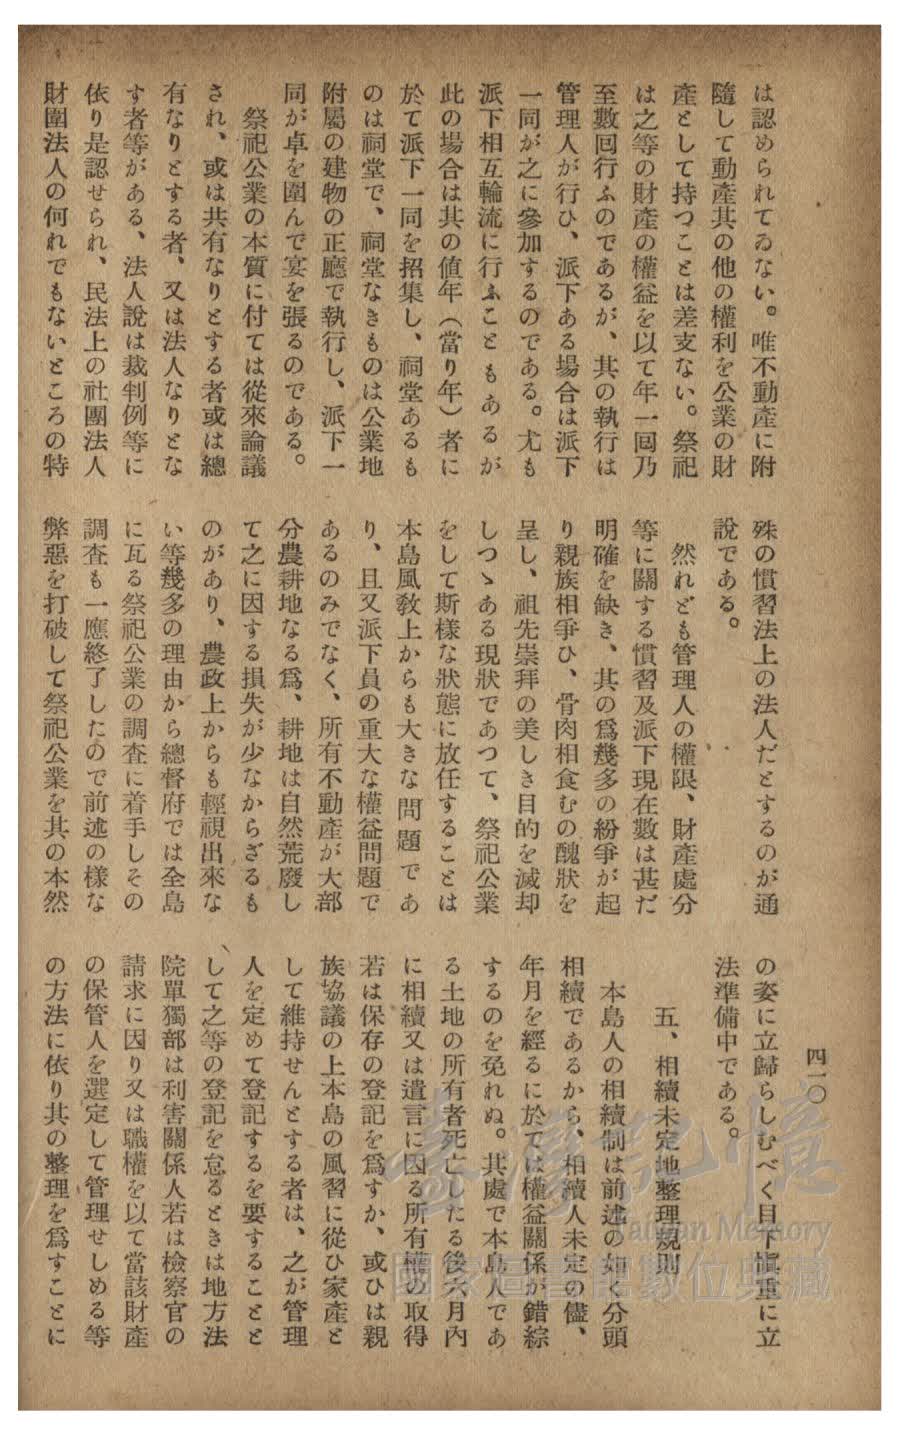 四一〇
は認められてゐない。唯不動產に附
隨して動產其の他の權利を公業の財
產として持つことは差支ない。祭祀
は之等の財產の權益を以て年一囘乃
至數囘行ふのであるが、其の執行は
管理人が行ひ、派下ある場合は派下
一同が之に參加するのである。尤も
派下相互輪流に行ふこともあるが
此の場合は其の値年（當り年）者に
於て派下一同を招集し、祠堂あるも
のは祠堂で、祠堂なきものは公業地
附屬の建物の正廳で執行し、派下一
同が卓を圍んで宴を張るのである。
祭祀公業の本質に付ては從來論議
され、或は共有なりとする者或は總
有なりとする者、又は法人なりとな
す者等がある、法人說は裁判例等に
依り是認せられ、民法上の社團法人
財團法人の何れでもないところの特
殊の慣習法上の法人だとするのが通
說である。
然れども管理人の權限、財產處分
等に關する慣習及派下現在數は甚だ
明確を缺き、其の爲幾多の紛爭が起
り親族相爭ひ、骨肉相食むの醜狀を
呈し、祖先崇拜の美しき目的を滅却
しつゝある現狀であつて、祭祀公業
をして斯樣な狀態に放任することは
本島風敎上からも大きな問題であ
り、且又派下員の重大な權益問題で
あるのみでなく、所有不動產が大部
分農耕地なる爲、耕地は自然荒廢し
て之に因する損失が少なからざるも
のがあり、農政上からも輕視出來な
い等幾多の理由から總督府では全島
に亙る祭祀公業の調査に着手しその
調査も一應終了したので前述の樣な
弊惡を打破して祭祀公業を其の本然
の姿に立歸らしむべく目下愼重に立
法準備中である。
五、相續未定地整理規則
本島人の相續制は前述の如く分頭
相續であるから、相續人未定の儘、
年月を經るに於ては權益關係が錯綜
するのを免れぬ。其處で本島人であ
る土地の所有者死亡したる後六月內
に相續又は遺言に因る所有權の取得
若は保存の登記を爲すか、或ひは親
族協議の上本島の風習に從ひ家產と
して維持せんとする者は、之が管理
人を定めて登記するを要することと
して之等の登記を怠るときは地方法
院單獨部は利害關係人若は檢察官の
請求に因り又は職權を以て當該財產
の保管人を選定して管理せしめる等
の方法に依り其の整理を爲すことに
臺灣記憶
Taiwan Memory
國家圖書館數位典藏